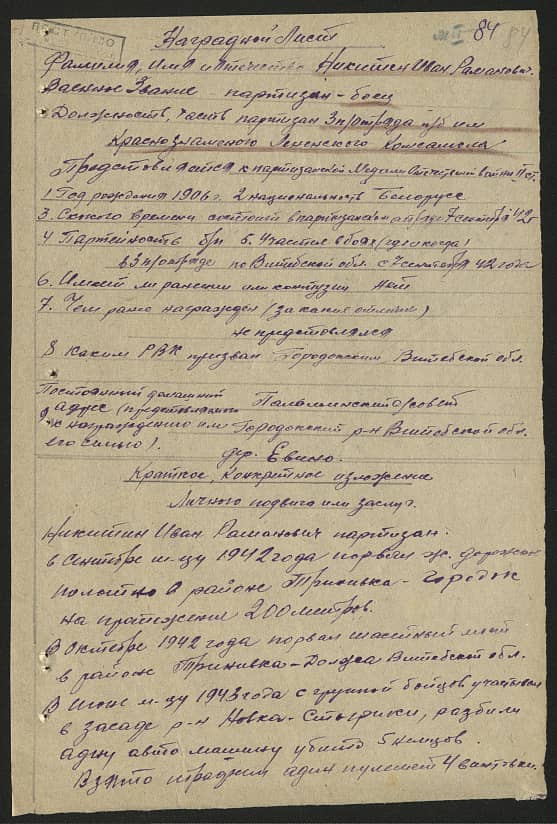 84 84
Наградной Лист
Фамилия, имя и отчество Никитин Иван Раманович.
Военное Звание - партизан - боец
Должность, часть партизан 3 п/отряда п/б им
Краснознаменого Лененского Комсамола
к партизанской Медали Отечествен войны II ст.
1 Год рождения 1906 г. 2 национальность Белорусс
3. С какого времени состоит в партизанском отряде 7 сентября 42г
4 Партейность б/п 5. Участие в боях (где и когда)
в 3 п/отряде по Витебской обл. с 7 сентября 42 года
6. Имеет ли ранения или контузии нет
7. Чем рание награжден (за какие отличия)
не представлялся
8 Каким РВК призван Городокским Витебской обл.
Постоянный домашний
9 адрес (представляемого с/совет
к награждению или Городокский р-н Витебской обл.
его семью). дер. Евино.
Краткое, конкретное изложение
Личного подвига или заслуг.
Никитин Иван Раманович партизан.
в Сентябре м-цу 1942 года порвал ж. дорожное
полотно в районе - Городок
на протяжении 200 метров.
В Октябре 1942 года порвал шасейный мост
в район - Витебской обл.
В Июне м-цу 1943 года с группой бойцов участвовал
в засаде р-н Новка - , разбили
адну авто машину убито 5 немцов.
Взято трафеи адин пулемет 4 винтовки.